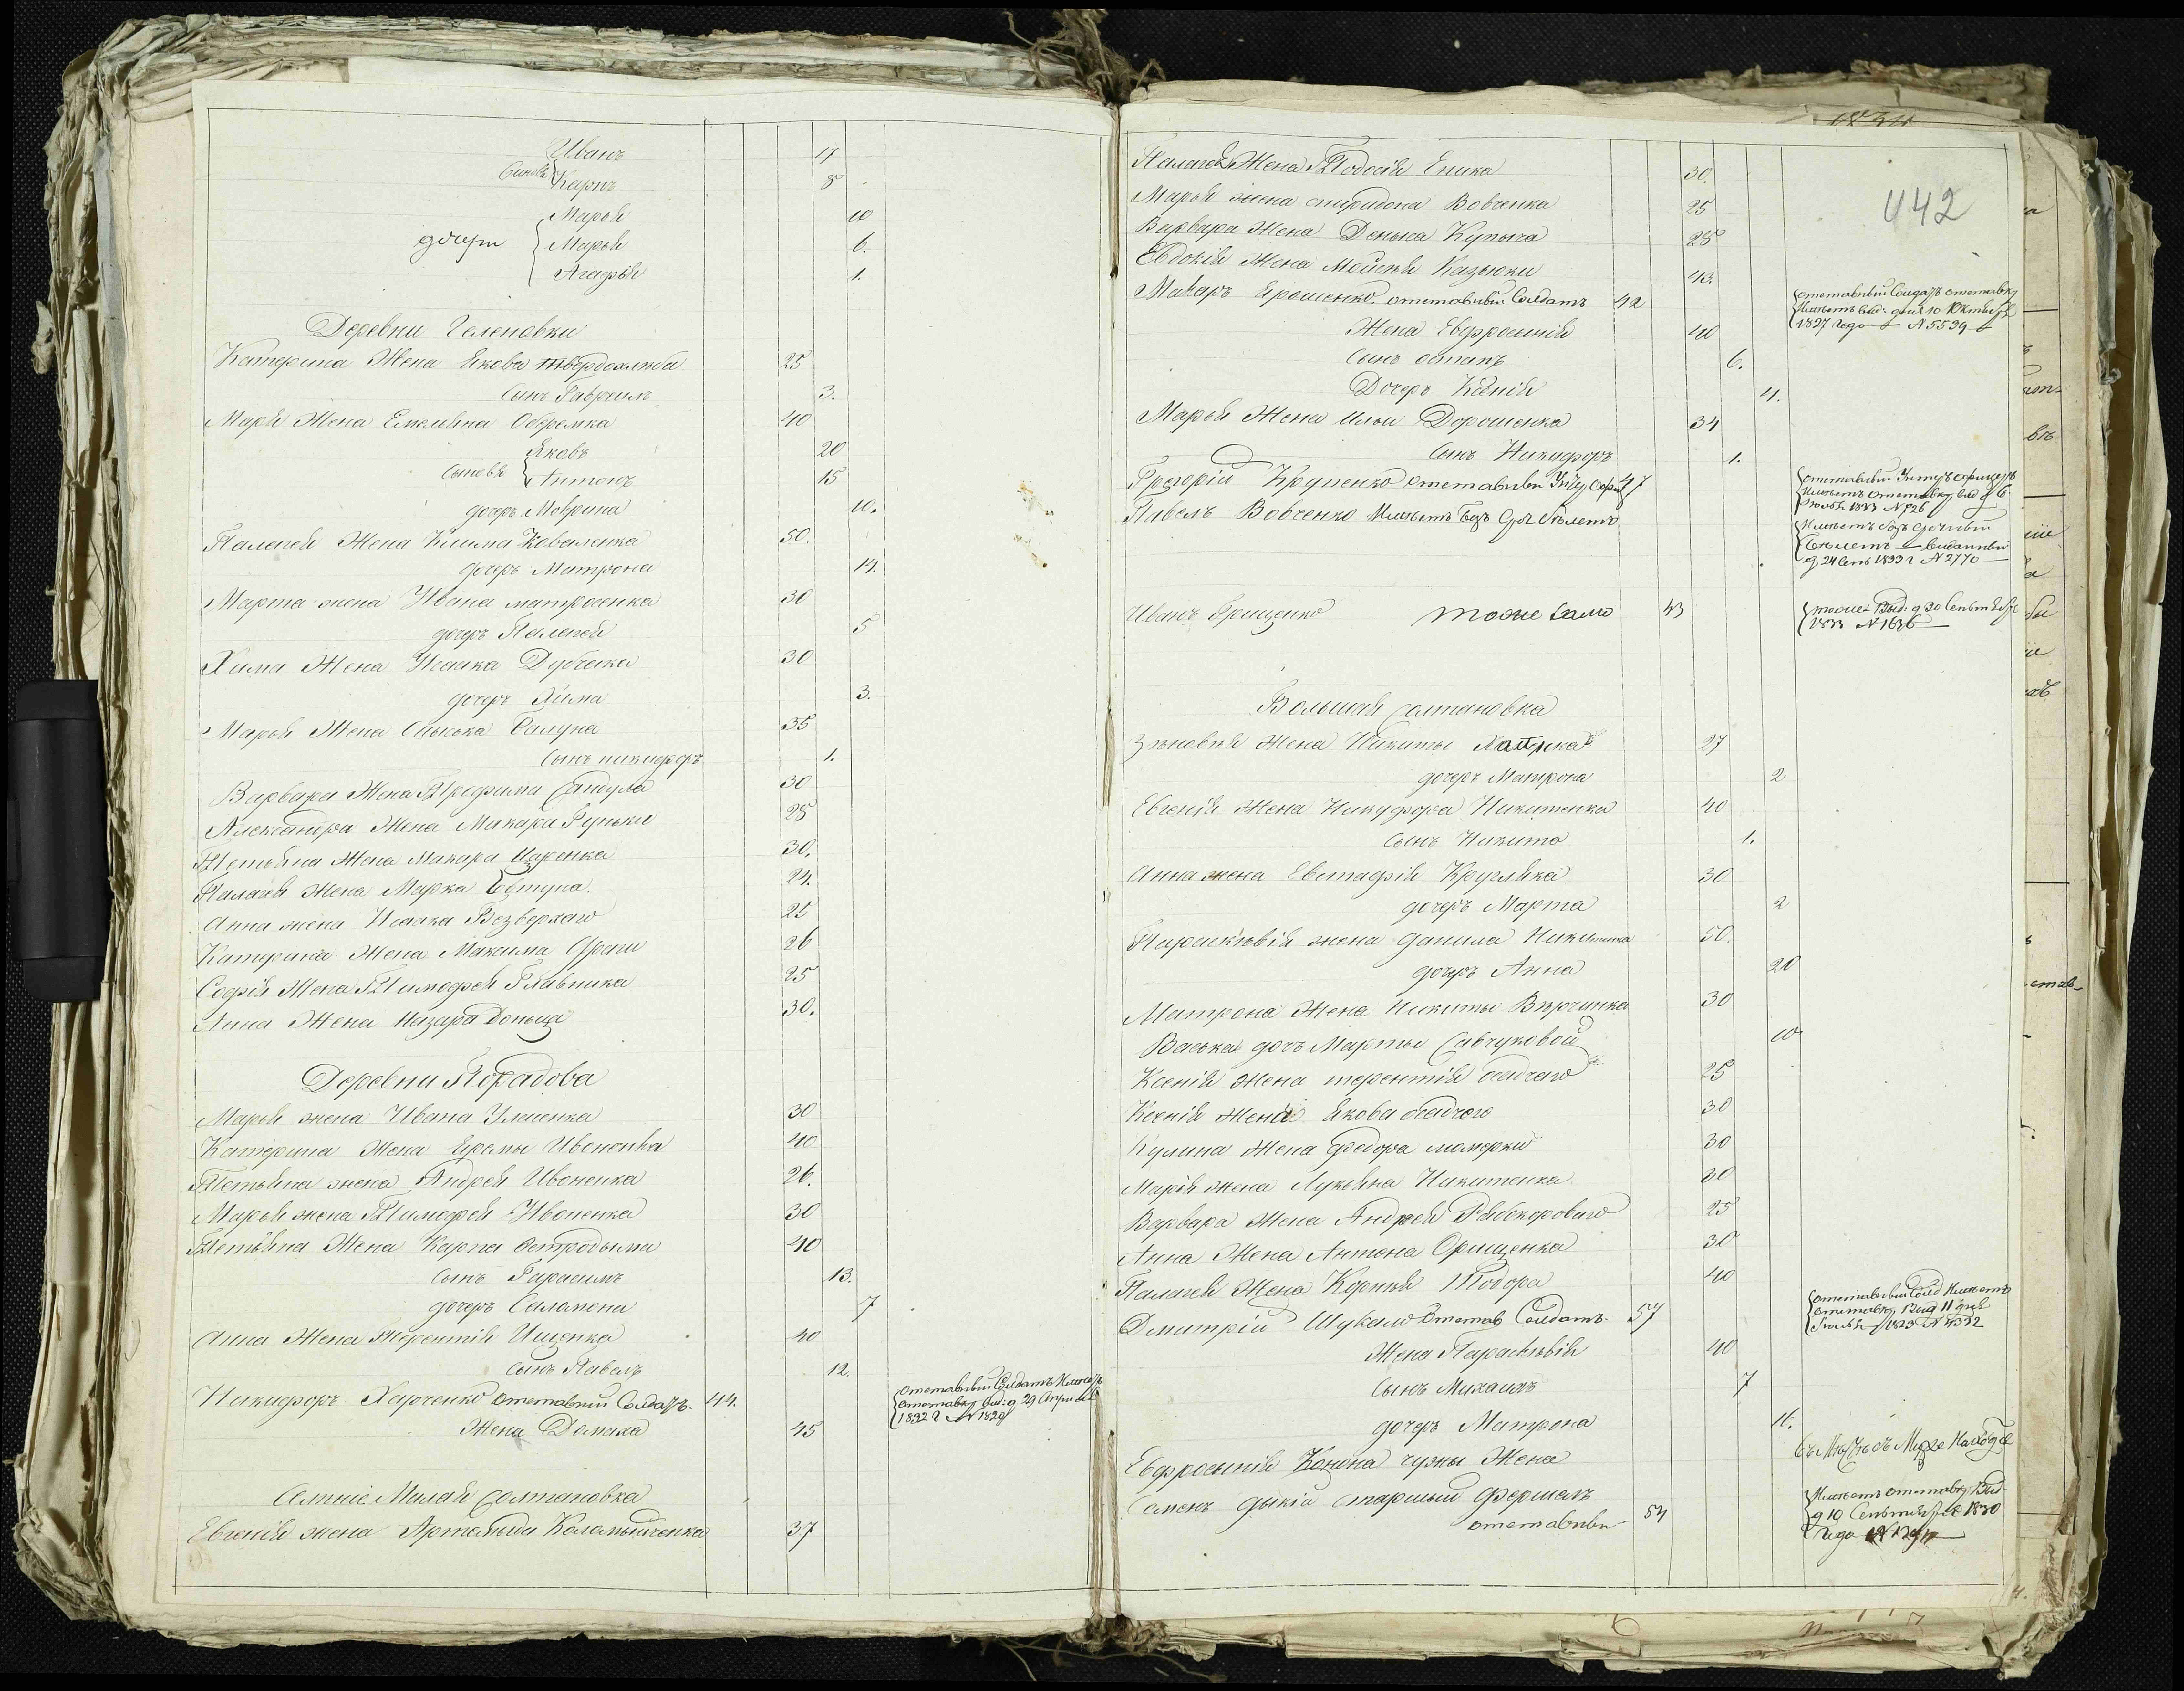 Иванъ 17
Синовя Карпъ 8
Марья 10
дочери Марья 6.
Агафія 1.
Деревни Геленовки
Катерина Жена Якова твердохлеба 25
Сынъ Гавреилъ 3.
Марья Жена Емельяна Оберемка 40
Яковъ 20
Сыновя Антонъ 15
дочерь Моврина 10.
Палагея Жена Клима Коваленка 50.
дочерь Матрона 14.
Марта жена Ивана матросенка 30
дочерь Палагея 5
Хима Жена Исаака Дубченка 30
дочерь Хима 3.
Марья Жена 35
Сынъ никифоръ 1.
Варвара Жена Трофима Сандула 30
Александра Жена Макара Рупьки 25
Тетьяна Жена Макара Царенка 30.
Палагея Жена Марка Евтуна. 24.
Анна жена Исаака Везверхаго 25
Катерина Жена Максима 26
Софія Жена Тимофея Главника 25
Анна Жена Назара Доньца 30.
Деревни Порадова
Марья жена Ивана Улесенка 30
Катерина Жена Яремы Ивоненка 40
Тетьяна жена Андрея Ивоненка 26.
Марья жена Тимофея Ивоненка 30
Тетьяна Жена Карпа Остродыма 40
Сынъ Гарасимъ 13.
дочерь Саламона 7
Анна Жена Терентія Ищенка 40
Сынъ Павелъ 12.
Никифоръ Харченко отставний Солдатъ. 44.
отставный Солдатъ Имеетъ
отставку выд: д 29 Априля
1832 г № 1829
Жена Домаха 45
Селтніе Малая Солтановка
Евгенія жена Артемьда Каламыйченка 37
442
Палагея Жена Тодосія Еника 30.
Марья жена спиридона Вовченка 25
Варвара Жена Дениса Купыча 25
Евдокія Жена Мойсея Казьюки 43.
Макаръ Ярошенко. отставный Солдатъ 42
отставный Солдатъ отставку
Имеетъ выд: дня 10 Октября
1827 года № 5539
Жена Евфросинія 40
Сынъ остапъ 6.
Дочерь Ксенія 4.
Марья Жена Ильи Дорошенка 34
Сынъ Никифоръ 1.
Григорій Крупенко отставный Унтц Офиц 47
отставный Унтеръ офицеръ
Имеетъ отставку выд д 6
Іюля 1833 № 726
Павелъ Вовченко Имеетъ безъ Сроч билетъ
Имеетъ безъ Срочный
Билетъ выданный
д 24 Сент 1833 г № 2770
Иванъ Грищенко тоже само 43
тоже. Выд: д 30 Сентября
1833 № 1636
Большая Солтановка
Зиновія Жена Никиты 27
дочерь Матрона 2
Евгенія Жена Никифора Никитенка 40
Сынъ Никита 1.
Анна жена Евстафія Кругляка 30
дочерь Марта 2
Параскевія жена данила Никитенка 50.
дочерь Анна 20
Матрона Жена Никиты Вирченка 30
Васька дочь Марты Савчуковой 10
Ксенія жена терентія осадчаго 25
Ксенія Жена Якова осадчого 30
Кулина Жена Федора момерки 30
Марія жена Лукьяна Никитенка 30
Варвара Жена Андрея Рябокороваго 25
Анна Жена Антона Орищенка 30
Палагея Жена Корнея Тодора 40
Дмитрій Шукало Отстав Солдатъ. 57
отставный Солд Имеетъ
отставку Выд 11 дня
Іюля 1823 № 4332
Жена Параскевія 40
Сынъ Михаилъ 7
дочерь Матрона 16.
Евфросинія Конона чузны Жена
Семенъ дыкій Старшый Фершелъ
отставный 54
Имеетъ отставку Выд
д 10 Сентября 1830
года №